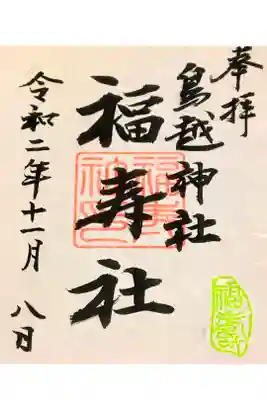 奉拝
鳥越神社
福寿社
令和二年十一月 八日